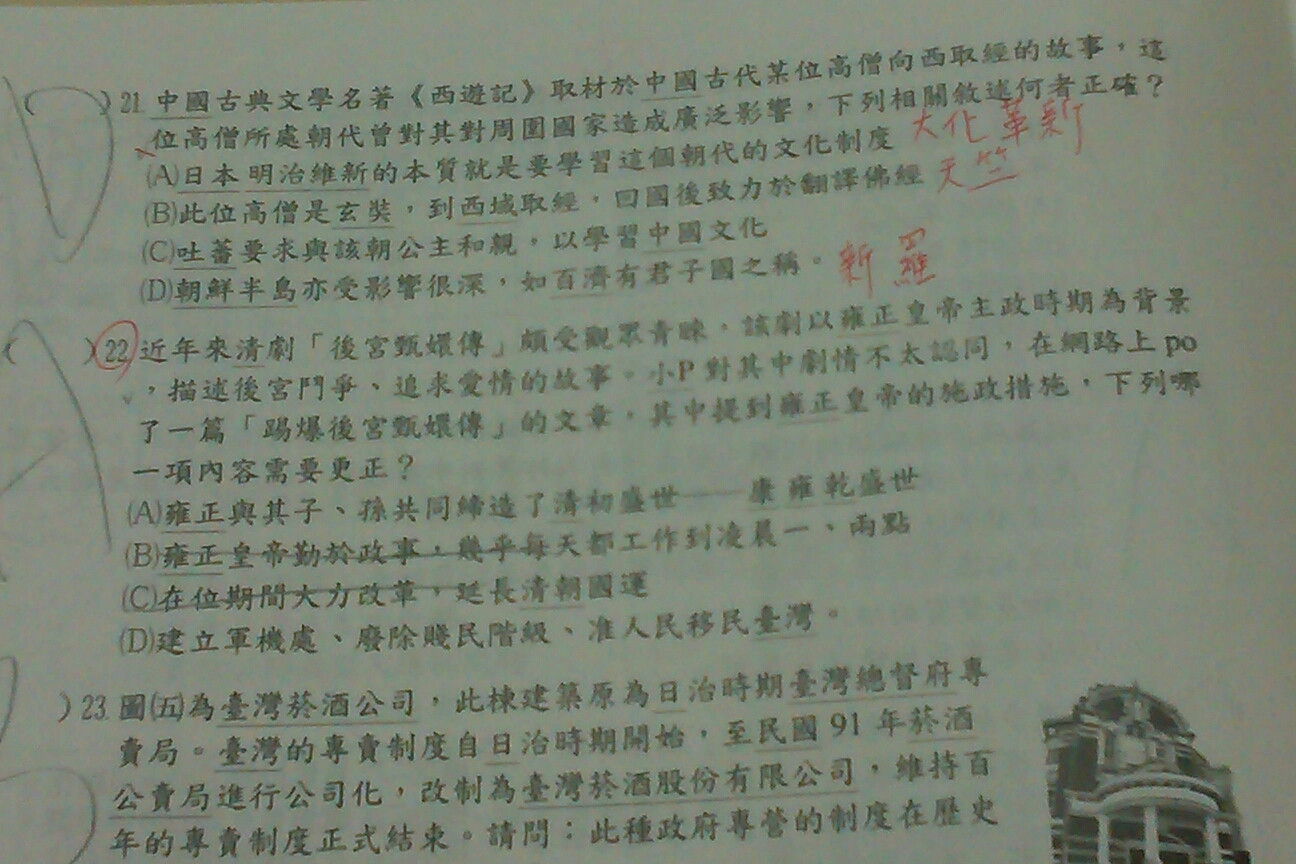 D
)21. 中國古典文學名著《西遊記》取材於中國古代某位高僧向西取經的故事，這
位高僧所處朝代曾對其對周圍國家造成廣泛影響，下列相關敘述何者正確？
(A)日本明治維新的本質就是要學習這個朝代的文化制度 大化革新
(B)此位高僧是玄裝，到西域取經，回國後致力於翻譯佛經 天竺
(C)吐蕃要求與該朝公主和親，以學習中國文化
(D)朝鮮半島亦受影響很深，如百濟有君子國之稱。 新羅
)22 近年來清劇「後宮甄嬛傳」頗受觀眾青睞，該劇以雍正皇帝主政時期為背景
，描述後宮鬥爭、追求愛情的故事。小P對其中劇情不太認同，在網路上po
了一篇「踢爆後宮甄嬛傳」的文章，其中提到雍正皇帝的施政措施，下列哪
一項內容需要更正？
(A)雍正與其子、孫共同締造了清初盛世──康雍乾盛世
(B)雍正皇帝勤於政事，幾乎每天都工作到凌晨一、兩點
(C)在位期間大力改革，延長清朝國運
(D)建立軍機處、廢除賤民階級、准人民移民臺灣。
)23. 圖(五)為臺灣菸酒公司，此棟建築原為日治時期臺灣總督府專
賣局。臺灣的專賣制度自日治時期開始，至民國 91 年菸酒
公賣局進行公司化，改制為臺灣菸酒股份有限公司，維持百
年的專賣制度正式結束。請問：此種政府專營的制度在歷史